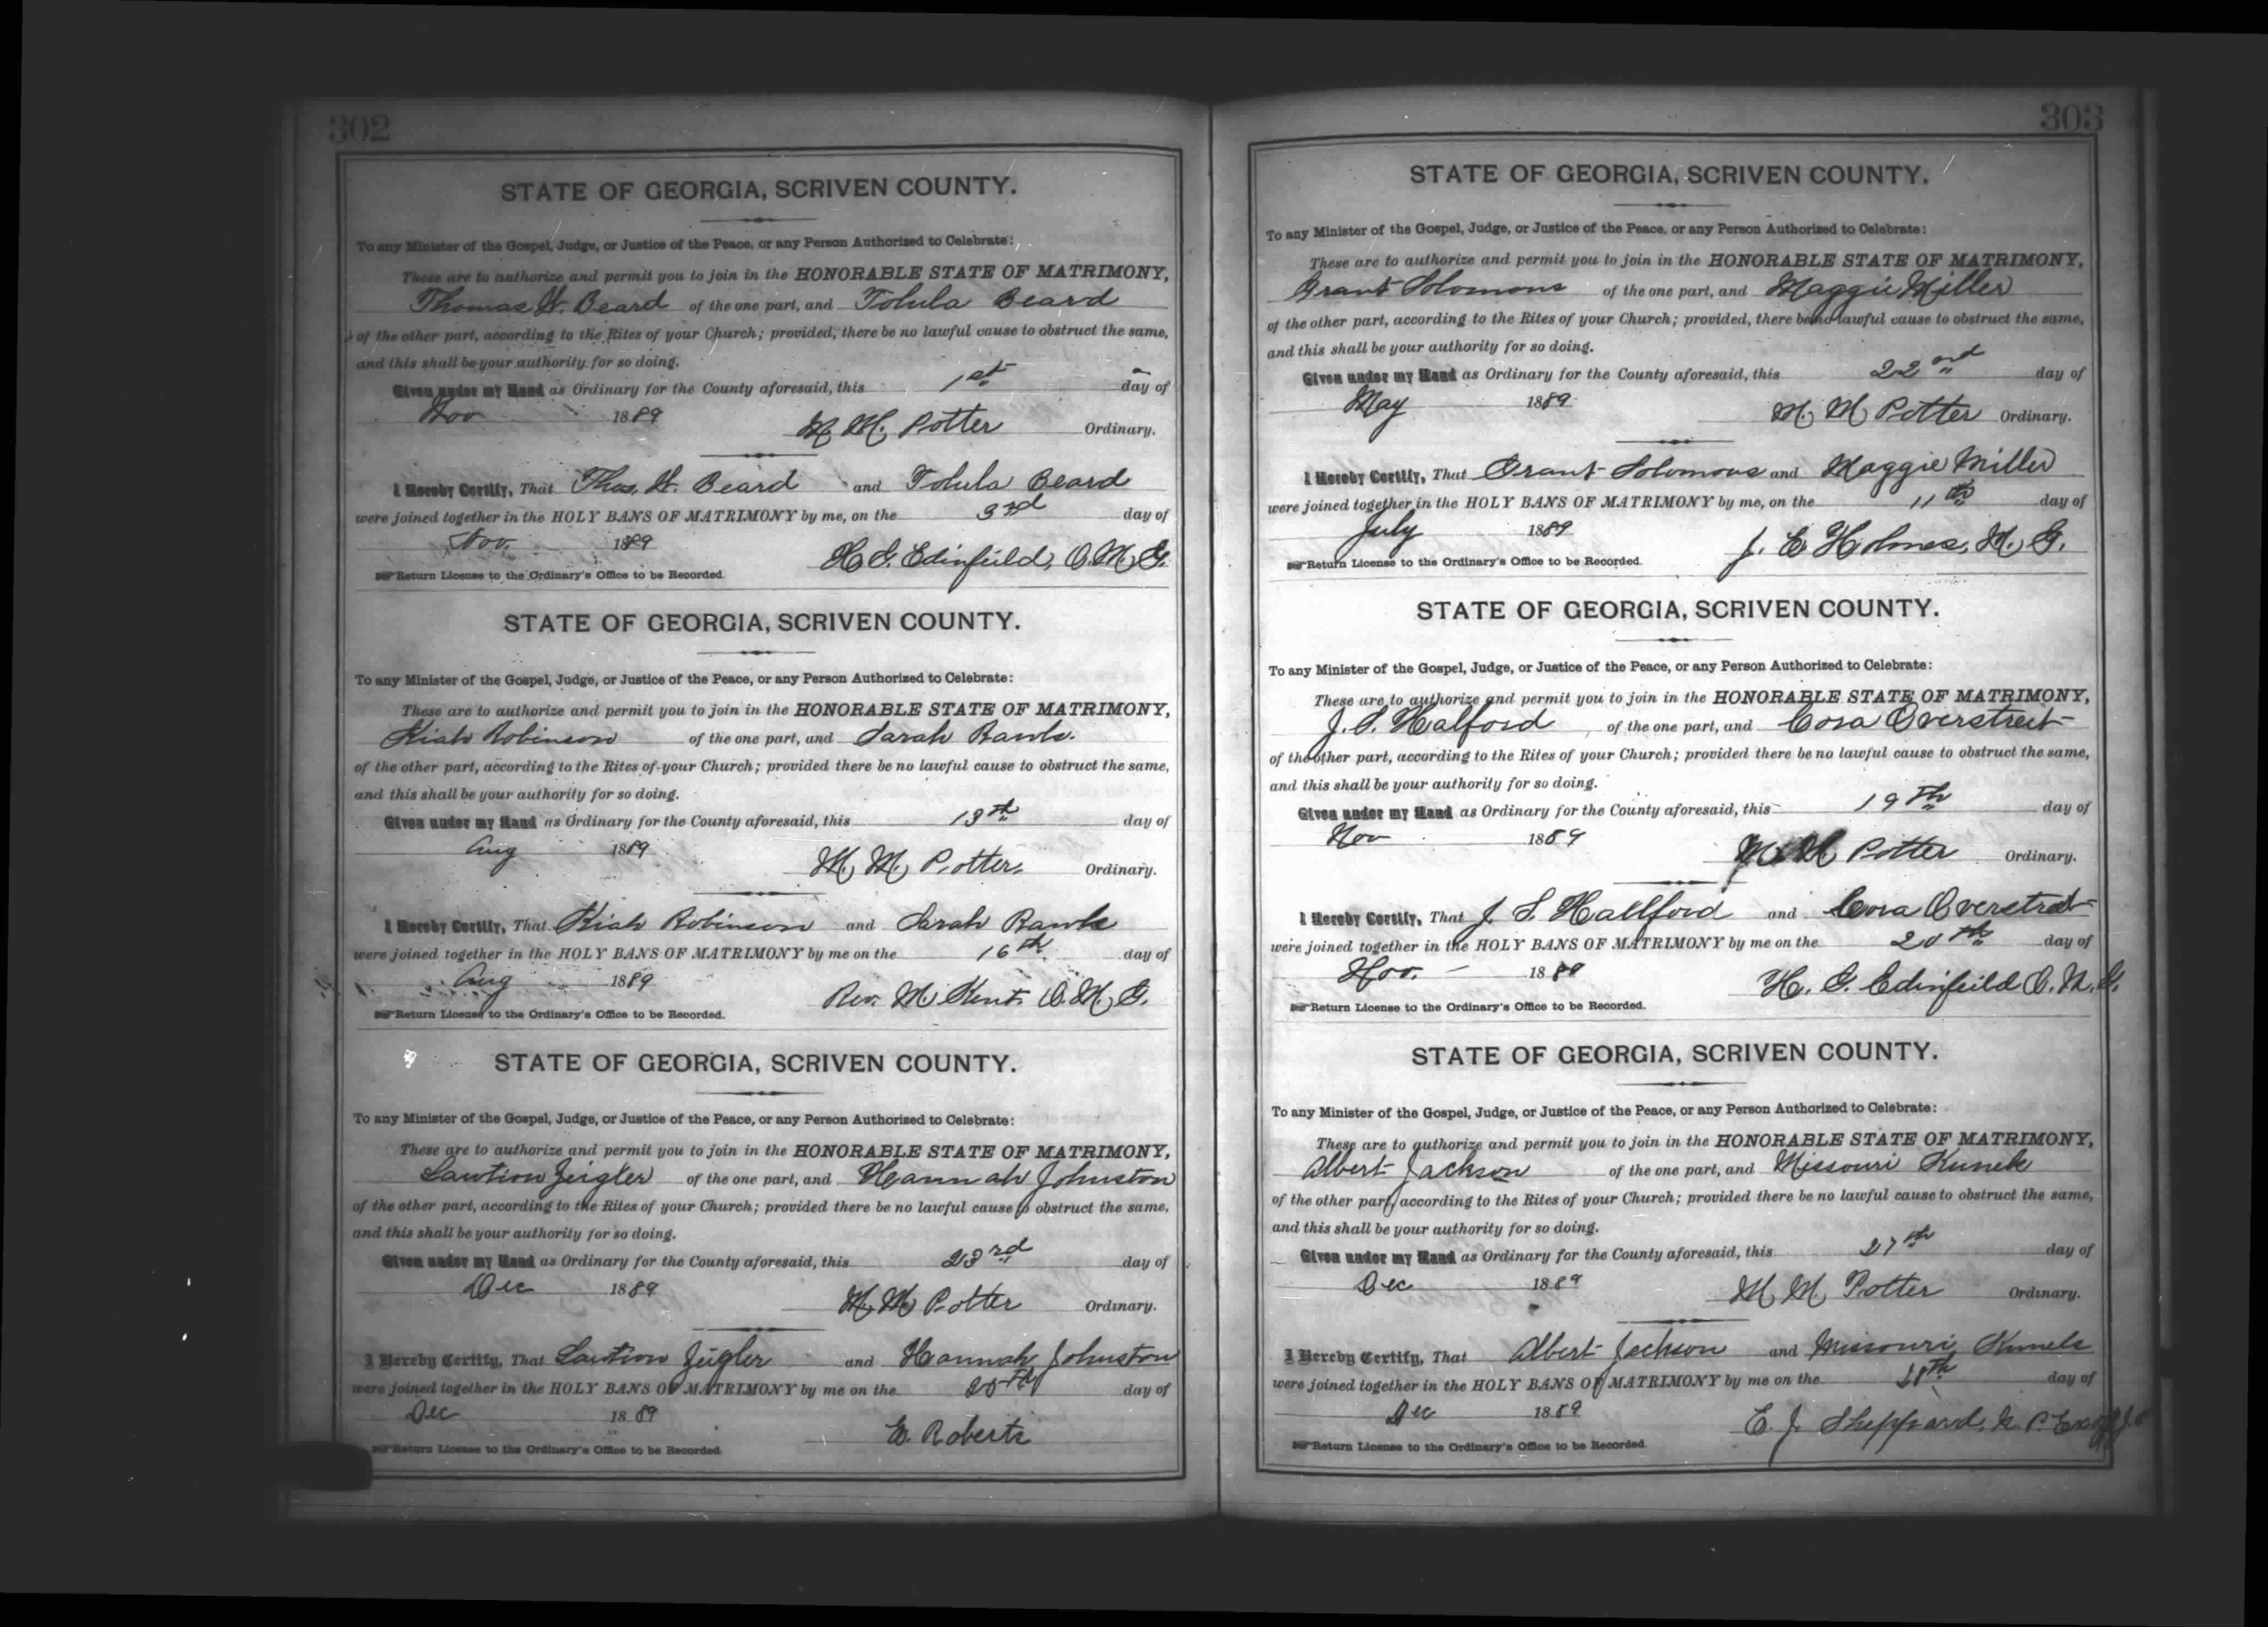 302
STATE OF GEORGIA, SCRIVEN COUNTY.
To any Minister of the Gospel, Judge, or Justice of the Peace, or any Person Authorized to Celebrate:
These are to authorize and permit you to join in the HONORABLE STATE OF MATRIMONY,
Thomas H. Beard of the one part, and Tolula Beard
of the other part, according to the Rites of your Church; provided, there be no lawful cause to obstruct the same,
and this shall be your authority for so doing.
Given under my Hand as Ordinary for the County aforesaid, this 1st day of
Nov 1889 M. M. Potter Ordinary.
I Hereby Certify, That Thos. H. Beard and Tolula Beard
were joined together in the HOLY BANS OF MATRIMONY by me, on the 3rd day of
Nov. 1889 H. G. Edinfield, O. M. G.
Return License to the Ordinary's Office to be Recorded.
STATE OF GEORGIA, SCRIVEN COUNTY.
To any Minister of the Gospel, Judge, or Justice of the Peace, or any Person Authorized to Celebrate:
These are to authorize and permit you to join in the HONORABLE STATE OF MATRIMONY,
Kiah Robinson of the one part, and Sarah Rawls.
of the other part, according to the Rites of your Church; provided there be no lawful cause to obstruct the same,
and this shall be your authority for so doing.
Given under my Hand as Ordinary for the County aforesaid, this 13th day of
Aug 1889 M. M. Potter. Ordinary.
I Hereby Certify, That Kiah Robinson and Sarah Rawls
were joined together in the HOLY BANS OF MATRIMONY by me on the 16th day of
Aug 1889 Rev. M. Kent O. M. G.
Return License to the Ordinary's Office to be Recorded.
STATE OF GEORGIA, SCRIVEN COUNTY.
To any Minister of the Gospel, Judge, or Justice of the Peace, or any Person Authorized to Celebrate:
These are to authorize and permit you to join in the HONORABLE STATE OF MATRIMONY,
Lawtion Zeigler of the one part, and Hannah Johnston
of the other part, according to the Rites of your Church; provided there be no lawful cause to obstruct the same,
and this shall be your authority for so doing.
Given under my Hand as Ordinary for the County aforesaid, this 23rd day of
Dec 1889 M. M. Potter Ordinary.
I Hereby Certify, That Lawtion Zeigler and Hannah Johnston
were joined together in the HOLY BANS OF MATRIMONY by me on the 25th day of
Dec 1889 E. Roberts
Return License to the Ordinary's Office to be Recorded.
303
STATE OF GEORGIA, SCRIVEN COUNTY.
To any Minister of the Gospel, Judge, or Justice of the Peace, or any Person Authorized to Celebrate:
These are to authorize and permit you to join in the HONORABLE STATE OF MATRIMONY,
Grant Solomons of the one part, and Maggie Miller
of the other part, according to the Rites of your Church; provided, there be no lawful cause to obstruct the same,
and this shall be your authority for so doing.
Given under my Hand as Ordinary for the County aforesaid, this 22nd day of
May 1889 M. M. Potter Ordinary.
I Hereby Certify, That Grant Solomons and Maggie Miller
were joined together in the HOLY BANS OF MATRIMONY by me, on the 11th day of
July 1889 J. E. Holmes, M. G.
Return License to the Ordinary's Office to be Recorded.
STATE OF GEORGIA, SCRIVEN COUNTY.
To any Minister of the Gospel, Judge, or Justice of the Peace, or any Person Authorized to Celebrate:
These are to authorize and permit you to join in the HONORABLE STATE OF MATRIMONY,
J. S. Halford of the one part, and Cora Overstreet
of the other part, according to the Rites of your Church; provided there be no lawful cause to obstruct the same,
and this shall be your authority for so doing.
Given under my Hand as Ordinary for the County aforesaid, this 19th day of
Nov 1889 M. M. Potter Ordinary.
I Hereby Certify, That J. S. Hallford and Cora Overstret
were joined together in the HOLY BANS OF MATRIMONY by me on the 20th day of
Nov. 1889 H. G. Edinfield O. M. G.
Return License to the Ordinary's Office to be Recorded.
STATE OF GEORGIA, SCRIVEN COUNTY.
To any Minister of the Gospel, Judge, or Justice of the Peace, or any Person Authorized to Celebrate:
These are to authorize and permit you to join in the HONORABLE STATE OF MATRIMONY,
Albert Jackson of the one part, and Missouri
of the other part, according to the Rites of your Church; provided there be no lawful cause to obstruct the same,
and this shall be your authority for so doing.
Given under my Hand as Ordinary for the County aforesaid, this 27th day of
Dec 1889 M. M. Potter Ordinary.
I Hereby Certify, That Albert Jackson and Missouri
were joined together in the HOLY BANS OF MATRIMONY by me on the 28th day of
Dec 1889 E. J. Sheppard, N. P. Ex
Return License to the Ordinary's Office to be Recorded.